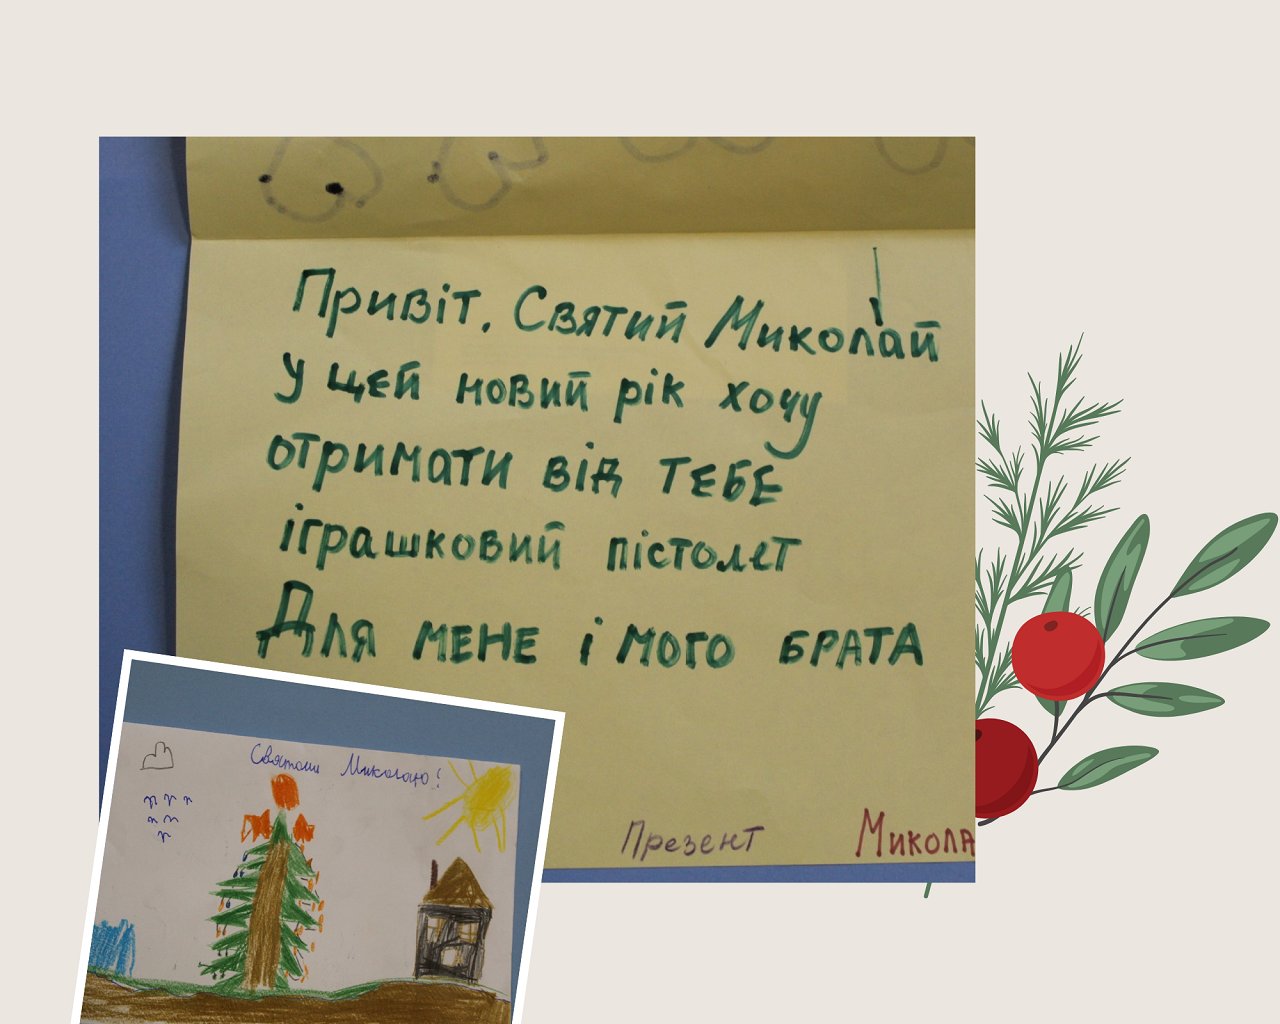 Привіт, Святий Миколай
У цей новий рік хочу
отримати від ТЕБЕ
іграшковий пістолет
Для МЕНЕ і МОГО БРАТА
Презент Микола
Святому Миколаю!